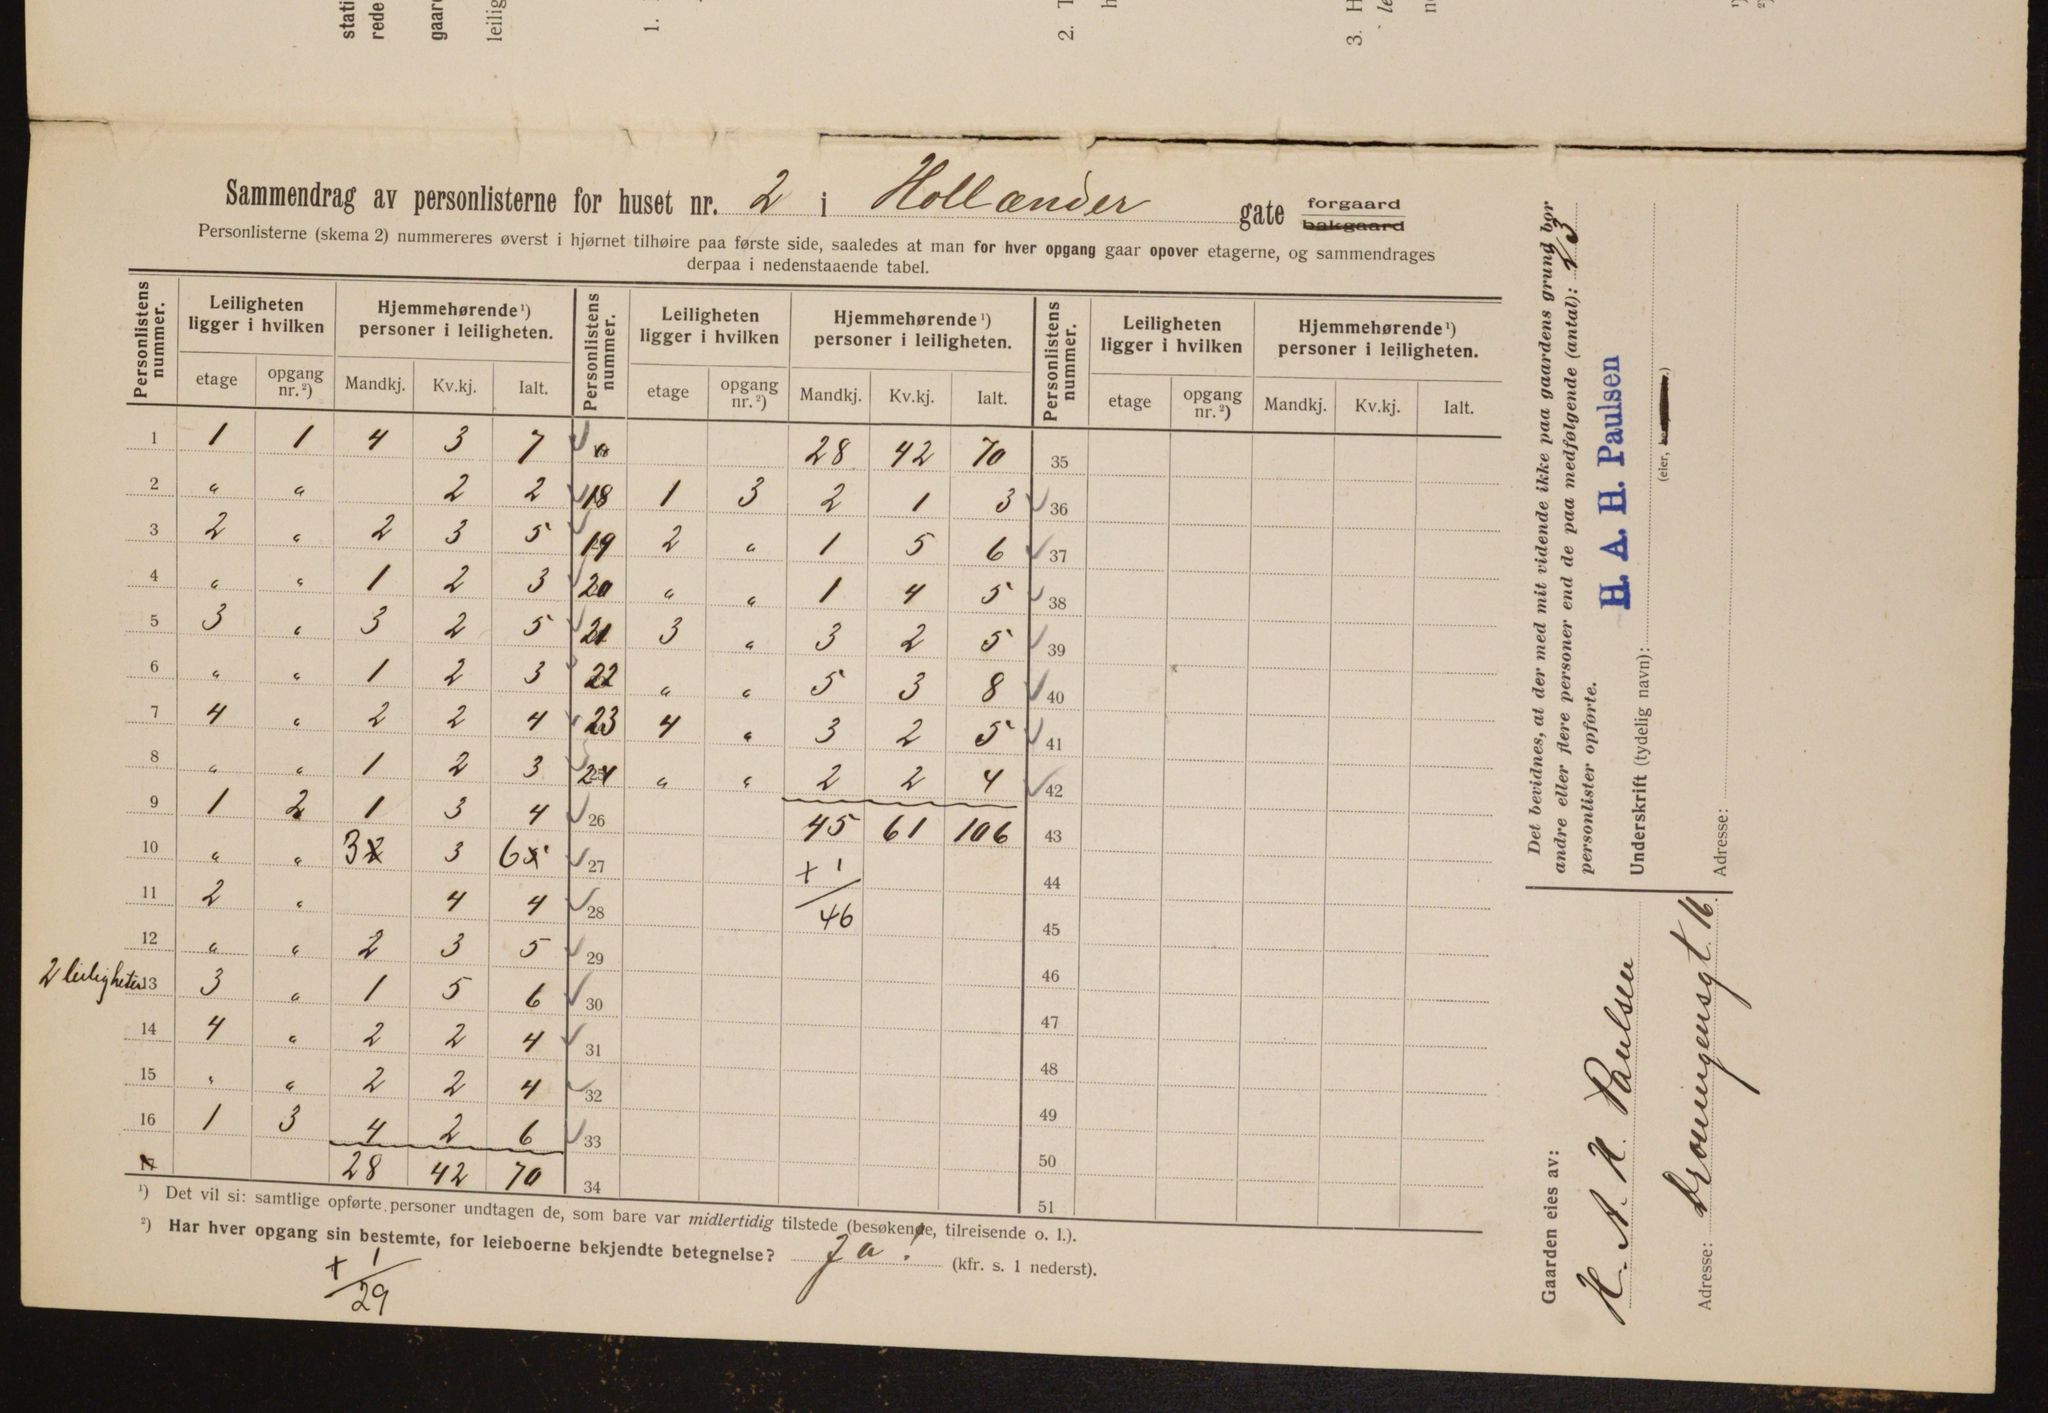 stati
rede
gaard
leilig
1.
2. T
h
3. H
le
n
1)
2)
Sammendrag av personlisterne for huset nr. 2 i Hollænder gate forgaard bakgaard
Personlisterne (skema 2) nummereres øverst i hjørnet tilhøire paa første side, saaledes at man for hver opgang gaar opover etagerne, og sammendrages
derpaa i nedenstaaende tabel.
Personlistens nummer. | Leiligheten ligger i hvilken | Hjemmehørende ¹) personer i leiligheten. | Personlistens nummer. | Leiligheten ligger i hvilken | Hjemmehørende ¹) personer i leiligheten. | Personlistens nummer. | Leiligheten ligger i hvilken | Hjemmehørende ¹) personer i leiligheten.
etage | opgang nr. ²) | Mandkj. | Kv.kj. | Ialt. | etage | opgang nr. ²) | Mandkj. | Kv.kj. | Ialt. | etage | opgang nr. ²) | Mandkj. | Kv.kj. | Ialt.
1 1 1 4 3 7 ✓ 28 42 70 35
2 " " 2 2 ✓ 18 1 3 2 1 3 ✓ 36
3 2 " 2 3 5 ✓ 19 2 " 1 5 6 ✓ 37
4 " " 1 2 3 ✓ 20 " " 1 4 5 ✓ 38
5 3 " 3 2 5 ✓ 21 3 " 3 2 5 ✓ 39
6 " " 1 2 3 ✓ 22 " " 5 3 8 ✓ 40
7 4 " 2 2 4 ✓ 23 4 " 3 2 5 ✓ 41
8 " " 1 2 3 ✓ 24 " " 2 2 4 ✓ 42
9 1 2 1 3 4 ✓ 26 45 61 106 43
10 " " 3 2 3 6 5 ✓ 27 + 1 44
11 2 " 4 4 ✓ 28 46 45
12 " " 2 3 5 ✓ 29 46
2 leiligheter 13 3 " 1 5 6 ✓ 30 47
14 4 " 2 2 4 ✓ 31 48
15 " " 2 2 4 ✓ 32 49
16 1 3 4 2 6 ✓ 33 50
17 28 42 70 34 51
¹) Det vil si: samtlige opførte personer undtagen de, som bare var midlertidig tilstede (besøkende, tilreisende o. l.).
²) Har hver opgang sin bestemte, for leieboerne bekjendte betegnelse? Ja! (kfr. s. 1 nederst).
+ 1
29
Det bevidnes, at der med mit vidende ikke paa gaardens grund bor
andre eller flere personer end de paa medfølgende (antal): 23
personlister opførte.
H. A. H. Paulsen
Underskrift (tydelig navn):
(eier, .)
Adresse:
Gaarden eies av:
H. A. H. Paulsen
Adresse: Dronningensgt. 16.